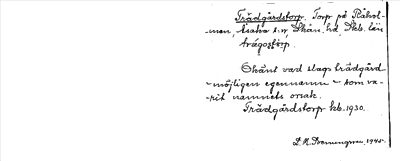 Trädgårdstorp. Torp på Råhol-
men, Åsaka sn, Skån. hd, Skb. län
trägostorp.
Okänt vad slags trädgård
– möjligen egennamn – som va-
rit namnets orsak.
Trädgårdstorp kb. 1930.
1945.